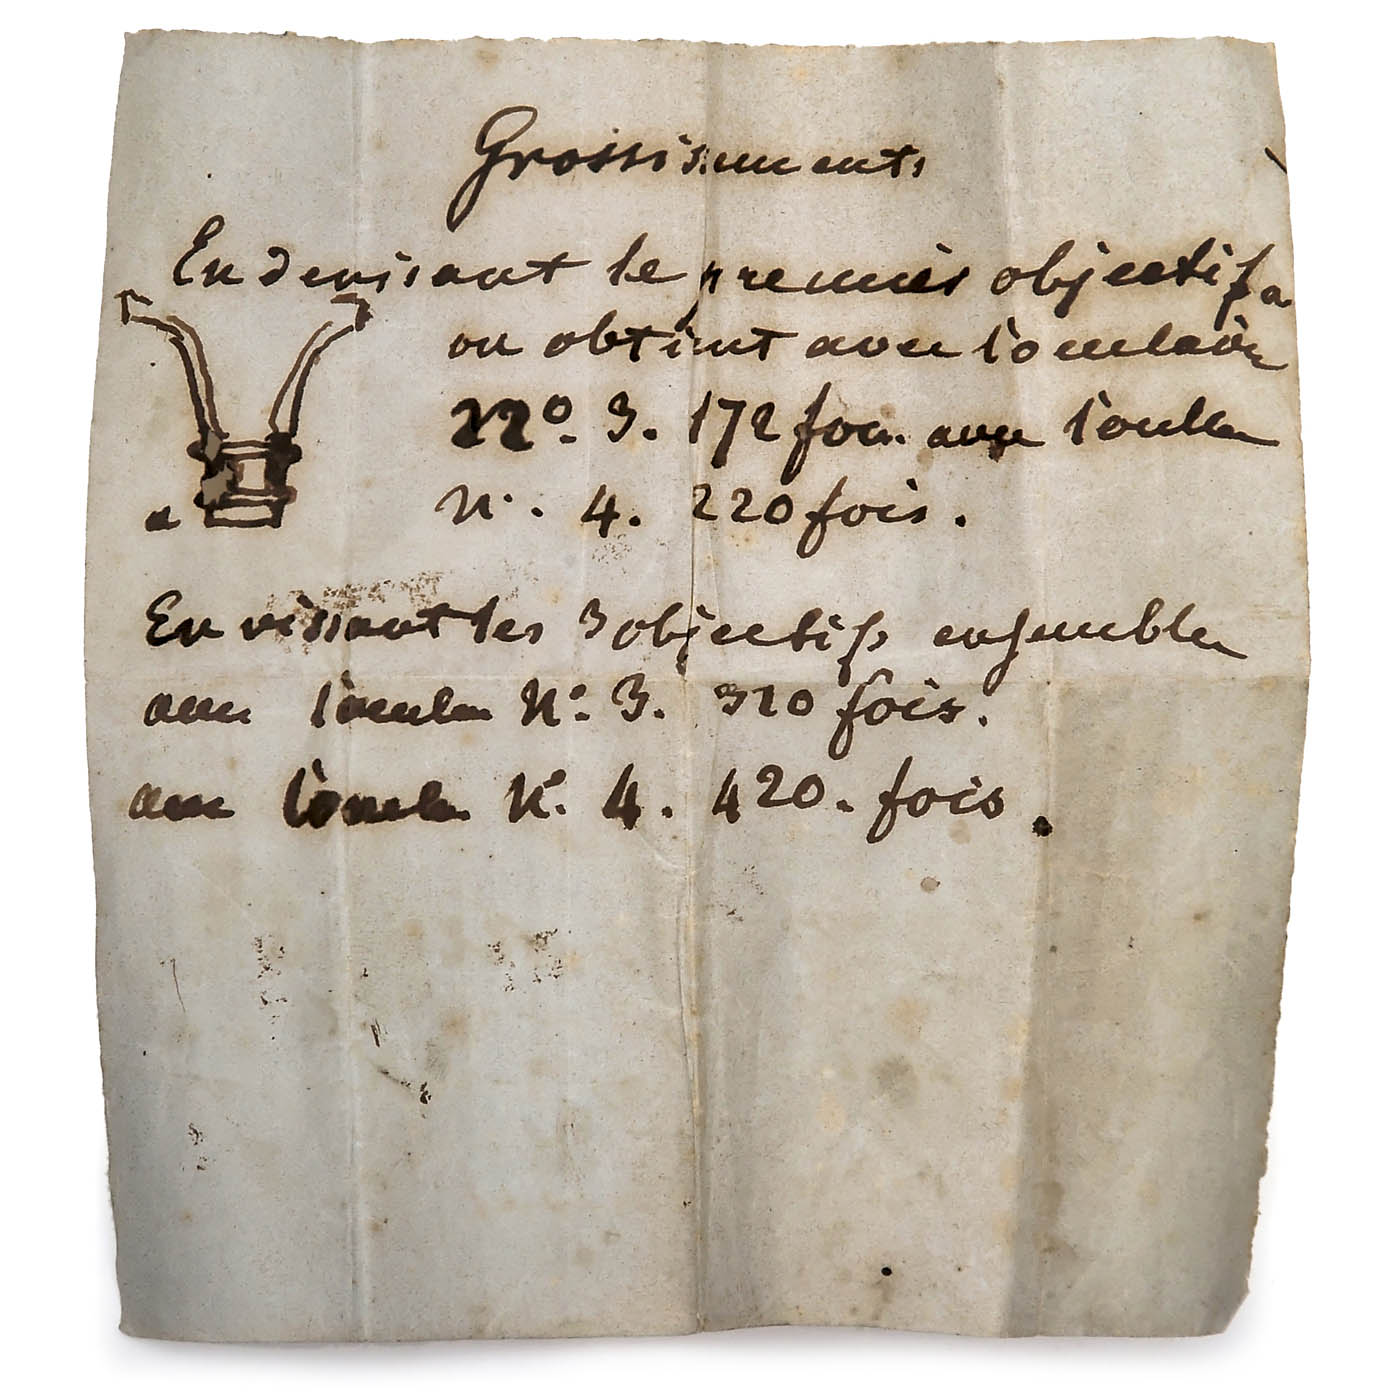 Grossissements
En devissant le premier objectif a
on obtient avec l'oculaire
n°. 3. 172 fois. avec l'oculaire
N°. 4. 220 fois.
a
En vissant les 3 objectifs ensembles
avec l'oculaire N°. 3. 310 fois.
avec l'oculaire N°. 4. 420. fois.